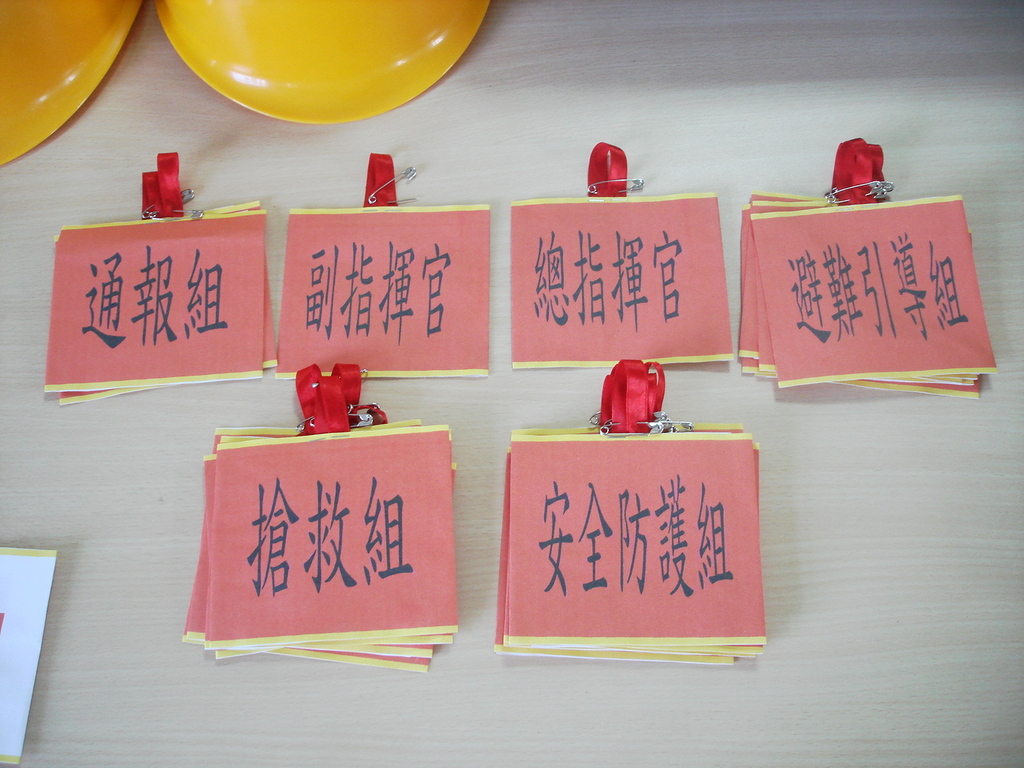 通報組
副指揮官
總指揮官
避難引導組
搶救組
安全防護組